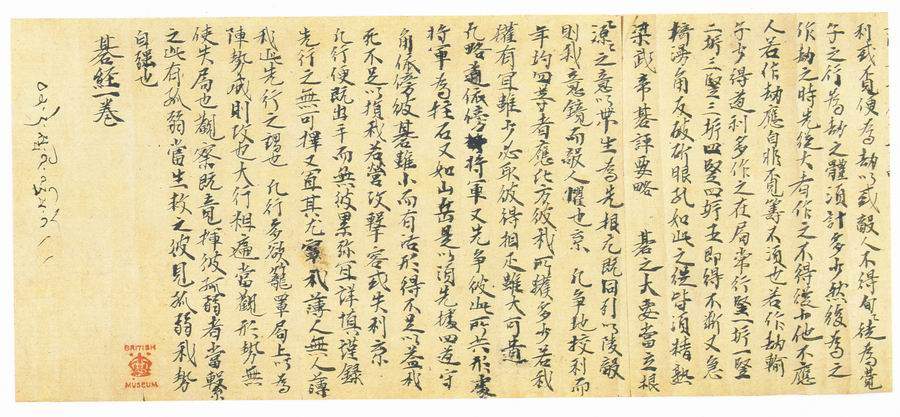 利或直便為劫以或敵人不得自緩為覺
子之行為劫之體須計多少然後為之
作劫之時先從大者作之不得後少他不應
人若作劫應自非覓籌不須也若作劫輸
子少得道利多作之在局常行竪一㭊一竪
二㭊二竪三㭊四竪四㭊五即得不斷又急
角反敵斫眼孔如此之徒皆須精熟
梁武帝碁評要略 碁之大要當立根
源之意以帶生為先根元既固引以陵敵
則我意鏡而敵人懼也京 凡爭地校利而
年均四等者應紀方彼我所獲多少若我
獲有冝雖少必取彼得相疋雖大可遺
凡略道依傍將軍又先爭彼此所共形處
將軍為柱石又如山岳是以須先據四道守
角依傍彼碁雖小而有活形得不足以益我
死不足以損我若營攻擊容或失利京
凡行便既出手而無彼累弥冝詳慎謹錄
先行之無可擇又冝其尤 我薄人無人薄
我此先行之謂也 凡行多欲籠罩局上以為
陣勢成則攻也大行粗遍當觀形勢無
使失局也觀察既竟揮彼孤弱者當繫
之此有孤弱當生救之彼見孤弱我勢
自強也
碁經一卷
BRITISH
MUSEUM